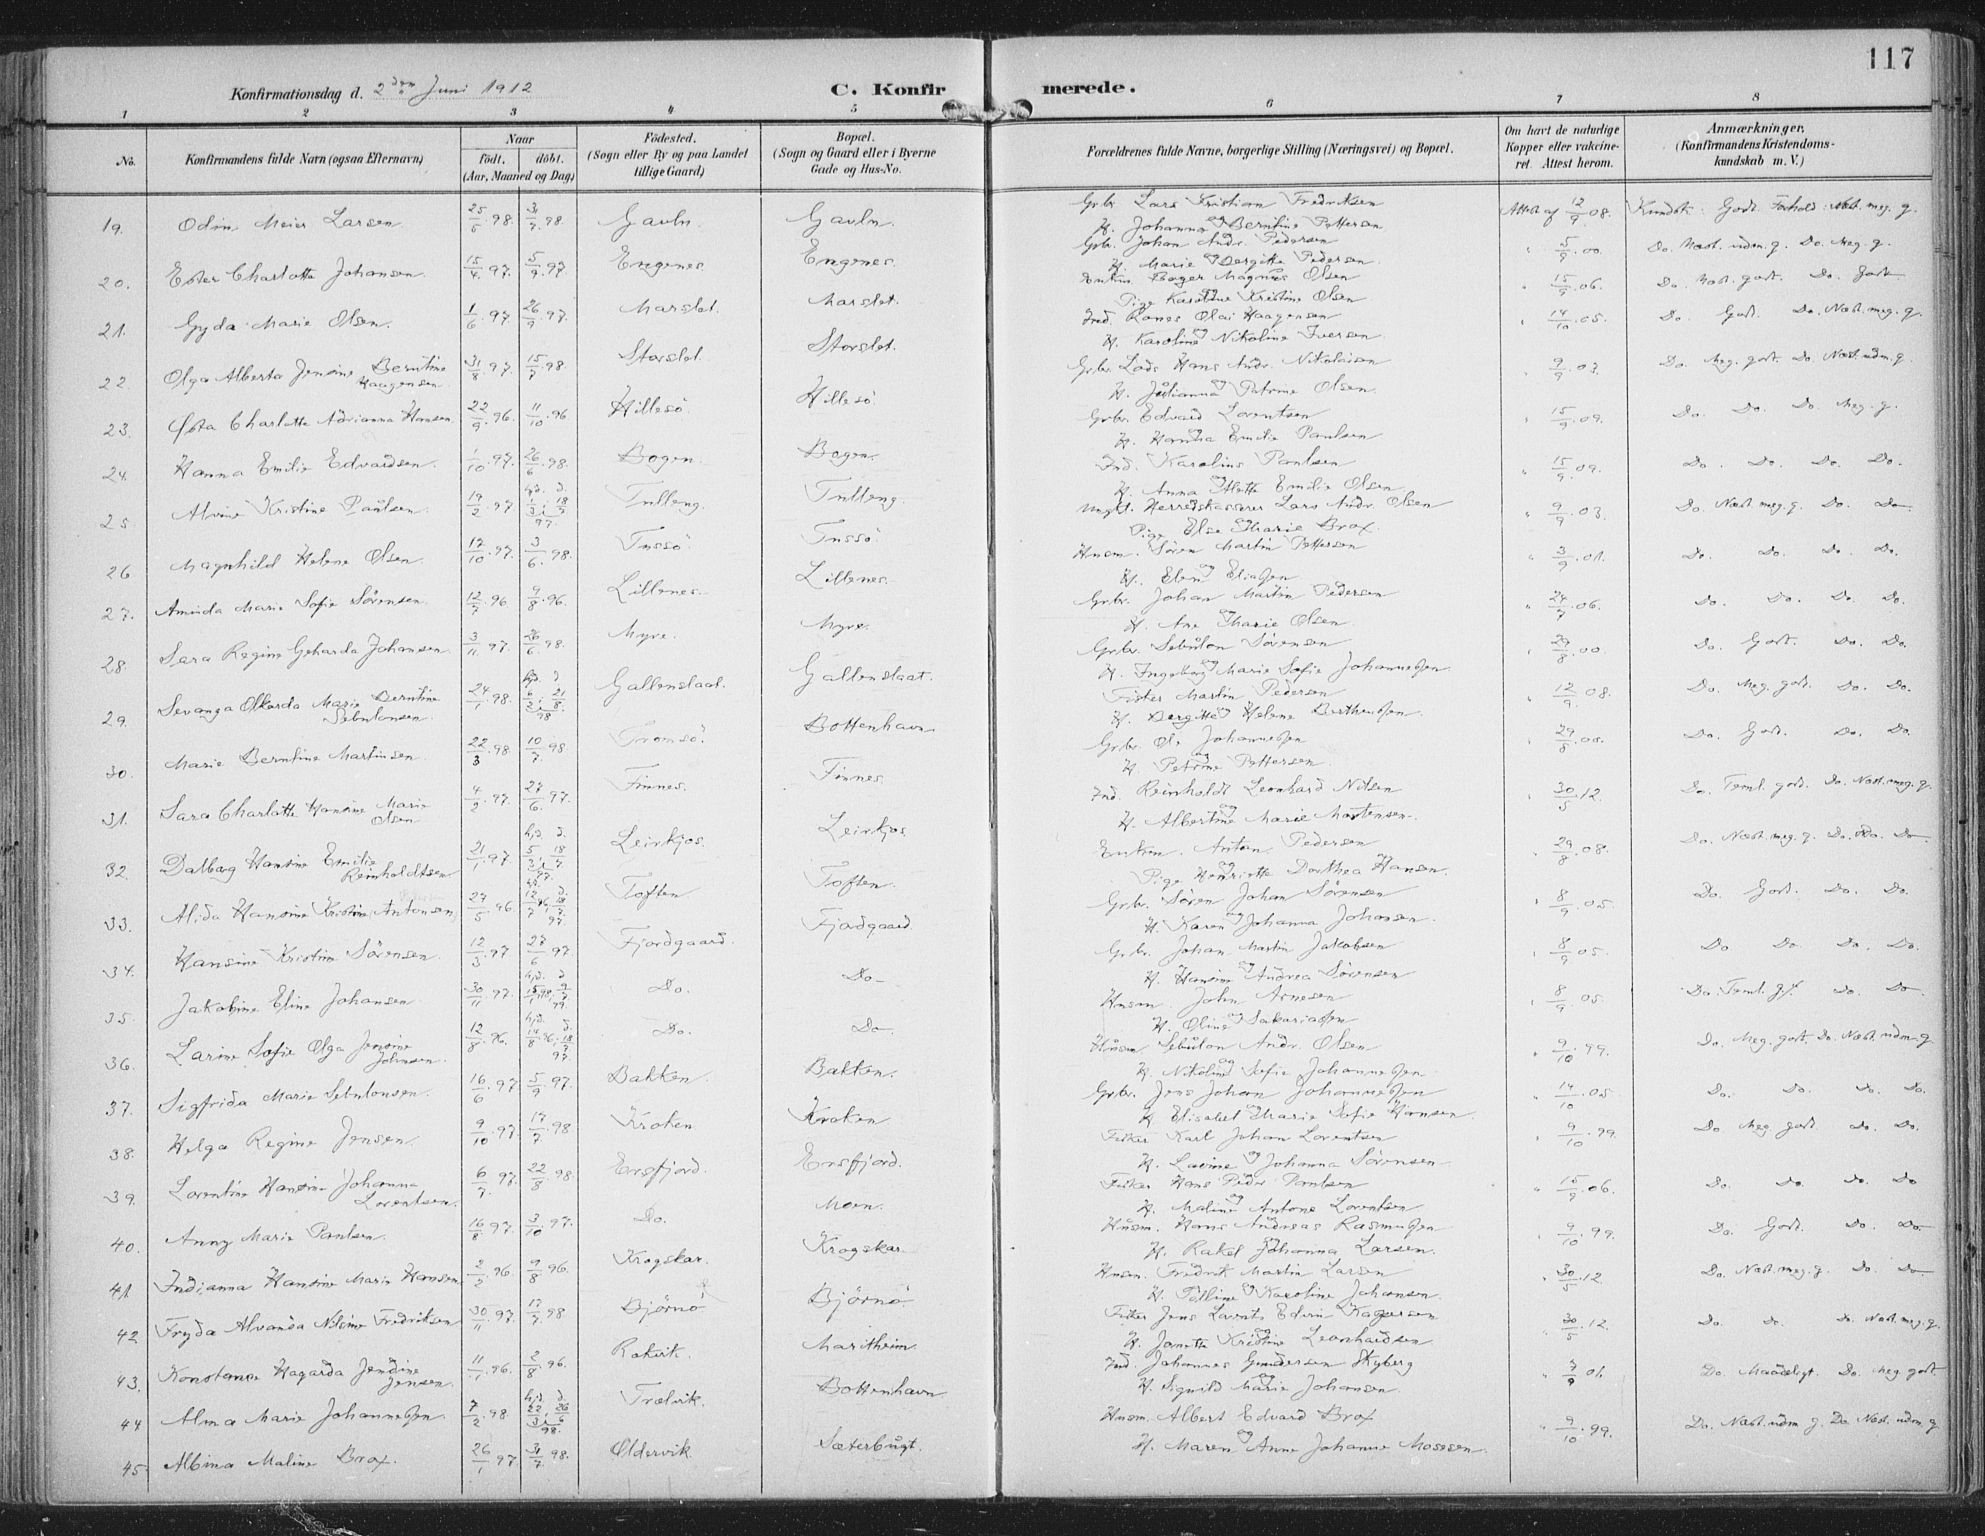 117
Konfirmationsdag d. 2den Juni 1912
C. Konfirmerede.
1 2 3 4 5 6 7 8
No.
Konfirmandens fulde Navn (ogsaa Efternavn)
Naar
födt. döbt.
(Aar, Maaned og Dag)
Födested.
(Sogn eller By og paa Landet
tillige Gaard)
Bopæl.
(Sogn og Gaard eller i Byerne
Gade og Hus-No.
Forældrenes fulde Navne, borgerlige Stilling (Næringsvei) og Bopæl.
Om havt de naturlige
Kopper eller vakcine-
ret. Attest herom.
Anmærkninger.
(Konfirmandens Kristendoms-
kundskab m. V.)
19. Odin Meier Larsen 25/5 98 31/7 98 Gavln Gavln. Grbr. Lars Kristian Fredriksen
H. Johanna Berntine Pettersen Attest af 12/9 08. Kundsk: Godt Forhold: Næst. meg. g.
20. Ester Charlotte Johansen 15/4 97. 5/9 97. Engenes Engenes. Grbr. Johan Andr. Pedersen
H. Marie Bergitte Pedersen " 5/9 00. Do. Næst. udm. g. Do. Meg. g.
21. Gyda Marie Olsen. 1/6 97. 26/9 97. Marslet. Marslet. Enkm. Roger Magnus Olsen
Pige Karoline Kristine Olsen " 15/9 06. Do. Næst. godt. Do. Godt
22. Olga Alberta Jensine Berntine Haagensen 31/8 97. 15/7 98. Storslet. Storslet. Ind. Rones Olai Haagensen
H. Karoline Nikoline Iversen " 14/10 05. Do. Godt. Do. Næst. meg. g.
23. Østa Charlotte Adrianna Hansen 22/9 96. 11/10 96 Hillesö Hillesö Grbr. Lods Hans Andr. Nikolaisen
H. Julianna Petrine Olsen. " 9/9 03. Do. Meg. godt. Do. Næst. udm. g.
24. Hanna Emilie Edvardsen. 1/10 97. 26/6 98. Bogen. Bogen. Grbr. Edvard Lorentsen
H. Hansia Emilie Paulsen " 15/9 09. Do. Do. Do. Meg. g.
25. Alvine Kristine Paulsen 19/2 97 hjd. 1/3 d. 18/7 97. Tulleng. Tulleng. Ind. Karolius Paulsen
H. Anna Aletta Emilie Olsen " 15/9 09. Do. Do. Do. Do.
26 Magnhild Helene Olsen. 17/10 97. 3/6 98. Tussö Tussö. Ungk. Herredskasserer Lars Andr. Olsen
Pige Else Marie Brox. " 9/9 03. Do. Næst. meg. g. Do. Do.
27. Aminda Marie Sofie Sörensen. 12/7 96 9/8 96. Lillenes. Lillenes. Husm. Sören Martin Pettersen
H. Elen Eliasen " 3/9 01. Do. Do. Do. Do.
28. Sara Regine Geharda Johansen. 3/11 97. 26/6 98. Myre. Myre. Grbr. Johan Martin Pedersen
H. Ane Marie Olsen. " 24/7 06. Do. Do. Do. Do.
29. Sevanga Olkarda Marie Berntine Sebulonsen. 24/1 98. hjd 6/2 d 21/8 98 Gallenslaat. Gallenslaat. Grbr. Sebulon Sörensen
H. Ingeborg Marie Sofie Johannesen. " 29/8 00 Do. Godt. Do. Do.
30. Marie Berntine Martinsen 22/3 98 10/7 98 Tromsö. Bottenhavn Fisker Martin Pedersen
H. Bergitte Helene Berthensen. " 12/9 08. Do. Meg. godt. Do. Do.
31. Sara Charlotte Hansine Marie Olsen 4/2 97. 27/6 97. Finnes. Finnes Grbr. Ole Johannesen
H. Petrine Pettersen. " 29/8 00. Do. Godt. Do. Do.
32. Dalbarg Hansine Emilie Reinholdtsen 21/1 97 hjd. 5/3 d. 18/7 97. Leirkjos. Leirkjos Ind. Reinholdt Leonhard Nilsen
H. Albertine Marie Mortensen. " 30/5 12. Do. Teml. godt. Do. Næst. meg. g.
33. Alida Hansine Kristine Antonsen 27/5 96 hjd. 12/7 96, d. 18/7 97 Toften. Toften. Enkm. Anton Pedersen
Pige Henriette Dorthea Hansen. " 29/8 08. Do. Næst. meg. g. Do. Do. Do
34. Hansine Kristine Sörensen. 12/3 97 27/6 97. Fjordgaard. Fjordgaard. Grbr. Sören Johan Sörensen
H. Karen Johanna Johansen. " 8/9 05. Do. Godt. Do. Do.
35. Jakobine Eline Johansen 30/11 97. hjd. 15/1 98, d 9/7 99. Do. Do. Grbr. Johan Martin Jakobsen
H. Hansine Andrea Sörensen " 8/9 05. Do. Do. Do. Do.
36. Larine Sofie Olga Jensine Johnsen. 12/8 96. hjd. 14/8 96, d. 18/7 97. Do. Do. Husm. John Arnesen
H. Oline Sakariasen " 8/9 05. Do. Teml. gt. Do. Do.
37. Sigfrida Marie Sebulonsen. 16/6 97 5/9 97. Bakken. Bakken. Husm. Sebulon Andr. Olsen
H. Nikoline Sofie Johannesen. " 9/10 99. Do. Meg. godt. Do. Næst. udm. g.
38. Helga Regine Jensen. 9/10 97 17/7 98 Kroken Kroken Grbr. Jens Johan Johannesen
H. Elisabet Marie Sofie Hansen. " 14/10 05 Do. Do. Do. Do.
39. Lorentine Hansine Johanna Lorentsen. 6/7 97. 22/8 98. Ersfjord. Ersfjord. Fisker Karl Johan Lorentsen
H. Lavine Johanna Sörensen " 9/10 99. Do. Meg. godt. Do. Do.
40. Anny Marie Paulsen. 16/8 97. 3/10 97. Do. Moen. Fisker Hans Peder Paulsen
H. Maline Antone Lorentsen " 15/9 06. Do. Do. Do. Do
41. Indianna Hansine Marie Hansen. 2/2 96. 9/8 96. Krogskar. Krogskar. Husm. Hans Andreas Rasmusen
H. Rakel Johanna Larsen. " 9/10 99. Do. Godt. Do. Do.
42 Fryda Alvanda Nilsine Fredriksen 30/11 97. 17/7 98 Björnö Björnö. Husm. Fredrik Martin Larsen
H. Pålline Karoline Johansen. " 30/5 12. Do. Næst. meg. g. Do. Do.
43. Konstanse Hagarda Jendine Jensen. 11/1 96. 2/8 96. Rakvik. Maritheim. Fisker Jens Lavrits Edvin Kagersen
H. Janetta Kristine Leonhardsen " 30/5 12. Do. Do. Do. Næst. meg. g.
44 Alma Marie Johannesen. 7/2 98. hjd 22/3 d. 26/6 98. Trælvik. Bottenhavn Ind. Johannes Gundersen Skyberg
H. Signild Marie Johansen. " 7/9 01. Do. Maadeligt. Do. Meg. godt
45. Albina Maline Brox. 26/1 97. 31/7 98. Oldervik. Sæterbugt. Husm. Albert Edvard Brox
H. Maren Anne Johanne Mosesen. " 9/10 99. Do. Næst. udm. g. Do Næst. udm. g.